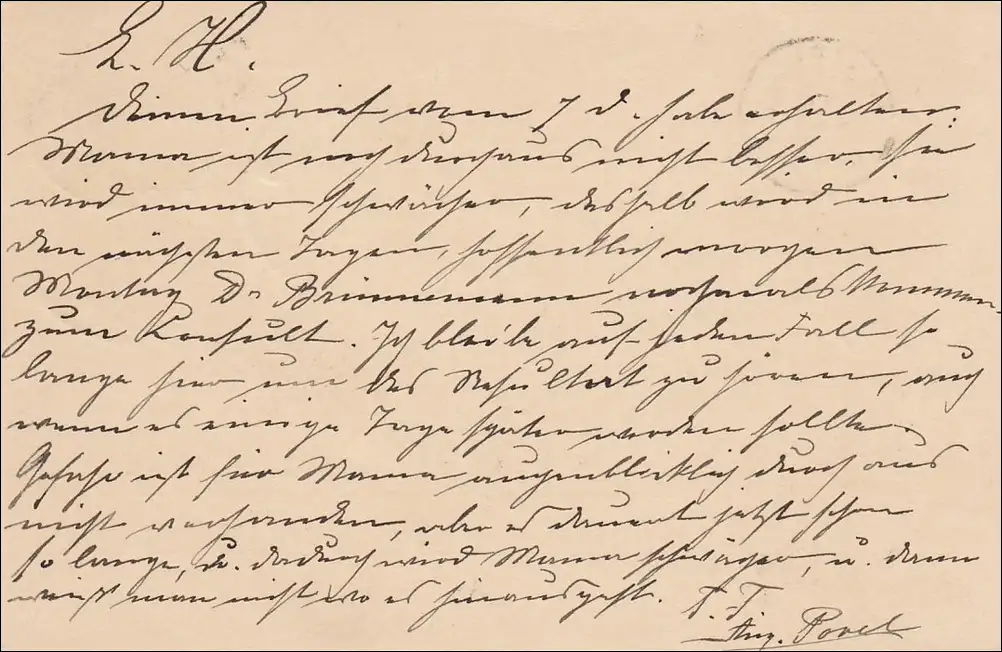 L. H.
Deinen Brief vom 7 d. habe erhalten.
Mama ist noch durchaus nicht besser, sie
wird immer schwächer, deshalb wird in
den nächsten Tagen, hoffentlich morgen
Montag Dr Brünnemann nochmals kommen
zum Konsult. Ich bleibe auf jeden Fall so
lange hier um das Resultat zu hören, auch
wenn es einige Tage später werden sollte.
Gefahr ist für Mama augenblicklich durchaus
nicht vorhanden, aber es dauert jetzt schon
so lange, u. dadurch wird Mama schwächer, u. dann
weiß man nicht wo es hinausgeht.
Aug. Povel